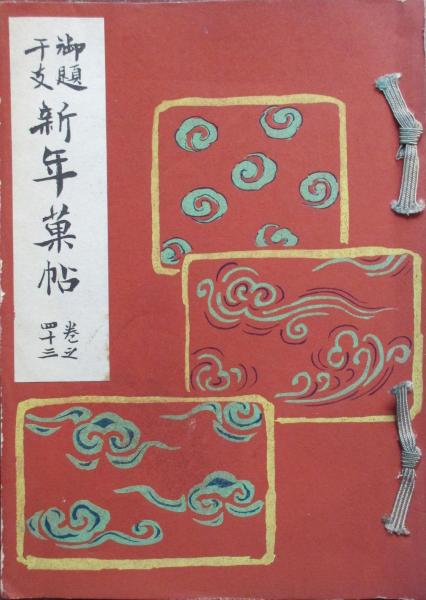 御題
干支
新年菓帖
巻之
四十三